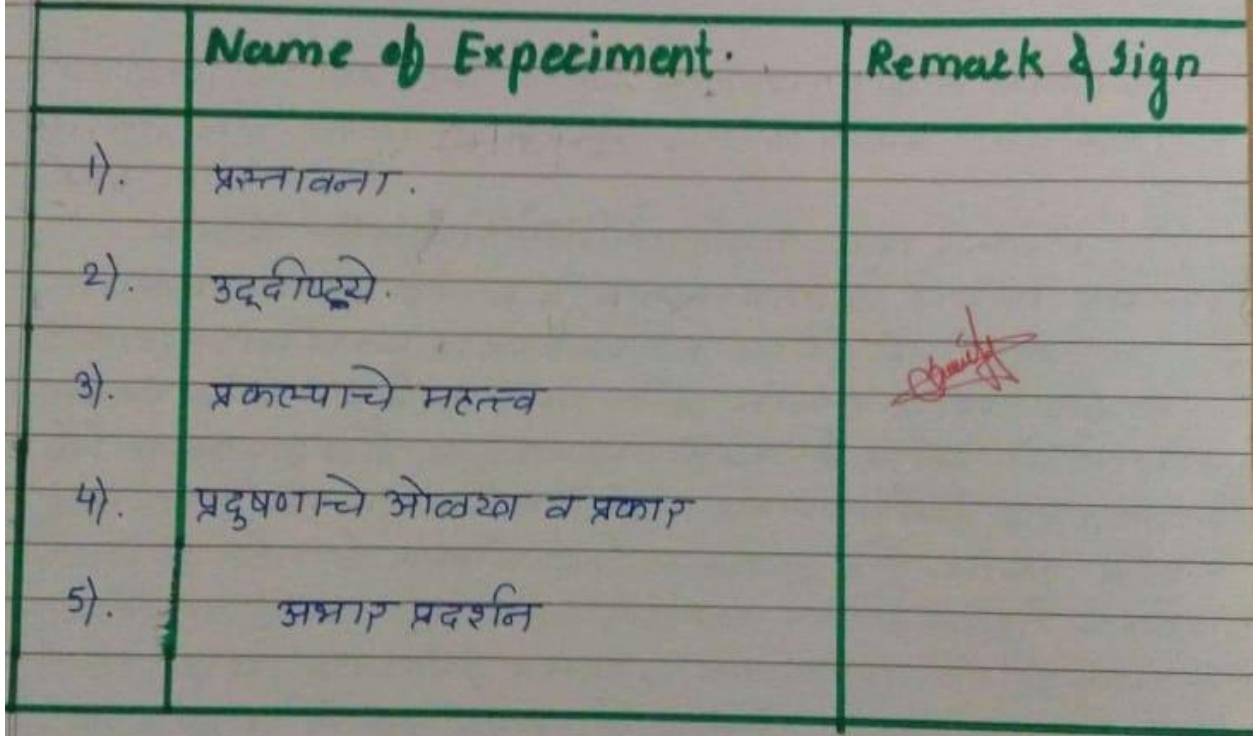 Name of Experiment. Remark & Sign
1). प्रस्तावना.
2). उद्दीष्ट्ये.
3). प्रकल्पाचे महत्त्व
4). प्रदुषणाचे ओळख व प्रकार
5). अभार प्रदर्शन